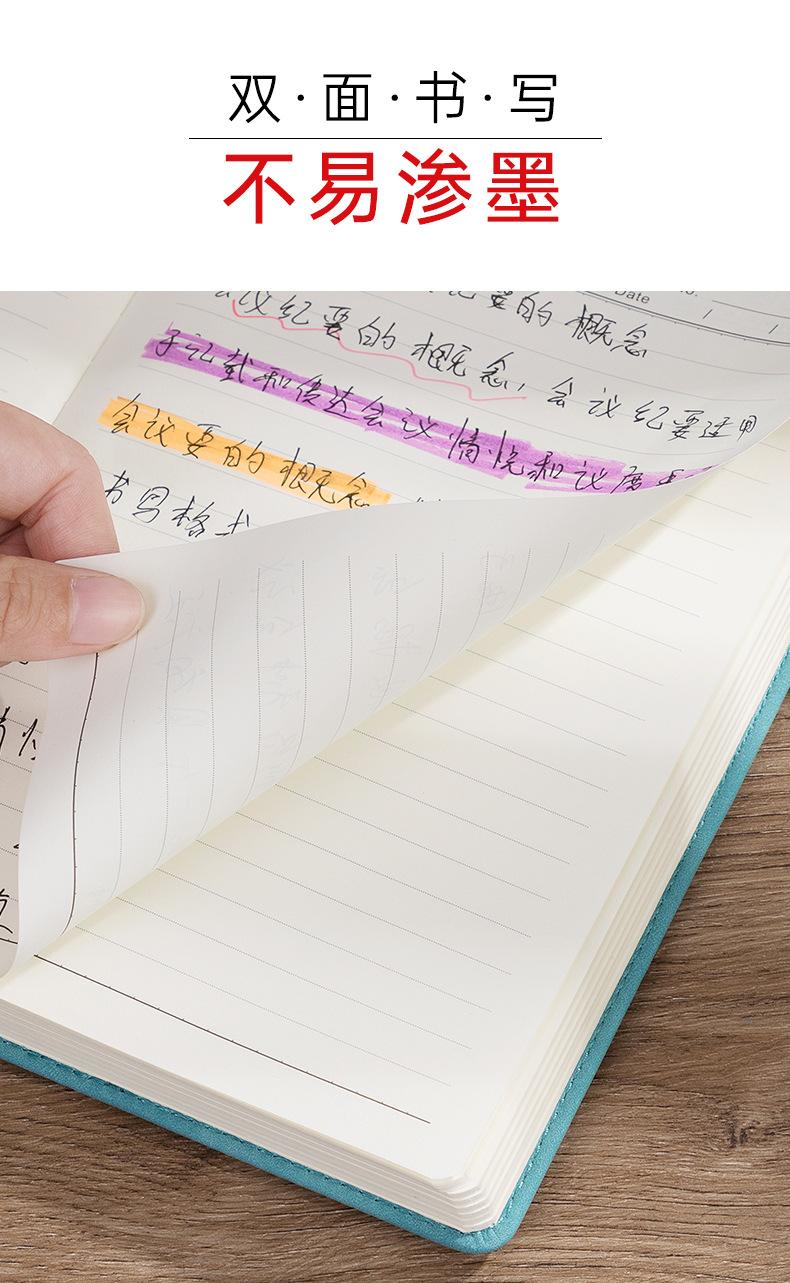 双·面·书·写
不易渗墨
要的概念
Date
会议纪要的概念，会议纪要适用
于记载和传达会议情况和议
会议要的概念
书写格式